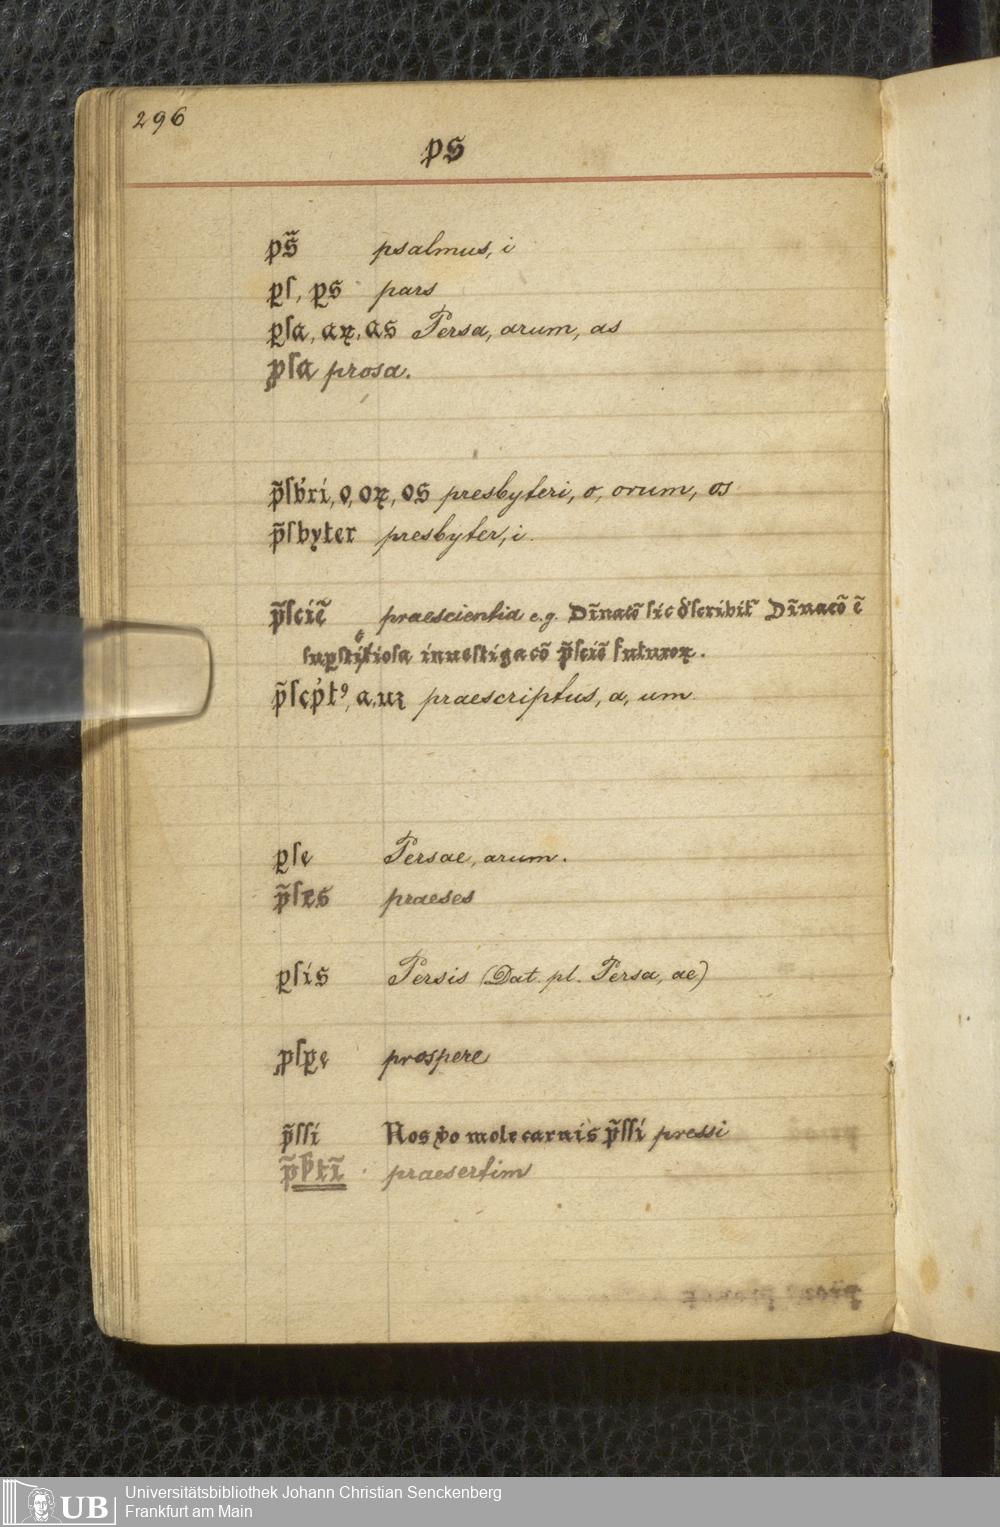 296
ps̃
ps̃ psalmus, i
ꝑſ, ꝑs pars
ꝑſa, aꝝ, as Persa, arum, as
ꝓſa prosa.
p̃ſb'ri, o, oꝝ, os presbyteri, o, orum, os
p̃ſbyter presbyter, i.
p̃ſciẽ praescientia e.g. Dĩnacõ ſic dſcribit᷑ Dĩnacõ ẽ
ſuꝑſticioſa inueſtigacõ p̃ſciẽ futuroꝝ.
p̃ſcp'tꝰ, a, uꝫ praescriptus, a, um
ꝑſę Persae, arum.
p̃ſes praeses
ꝑſis Persis (Dat. pl. Persa, ae)
ꝓſꝑę prospere
p̃ſſi Nos v̊o mole carnis p̃ſſi pressi
p̃ẜtĩ praesertim
UB Universitätsbibliothek Johann Christian Senckenberg
Frankfurt am Main